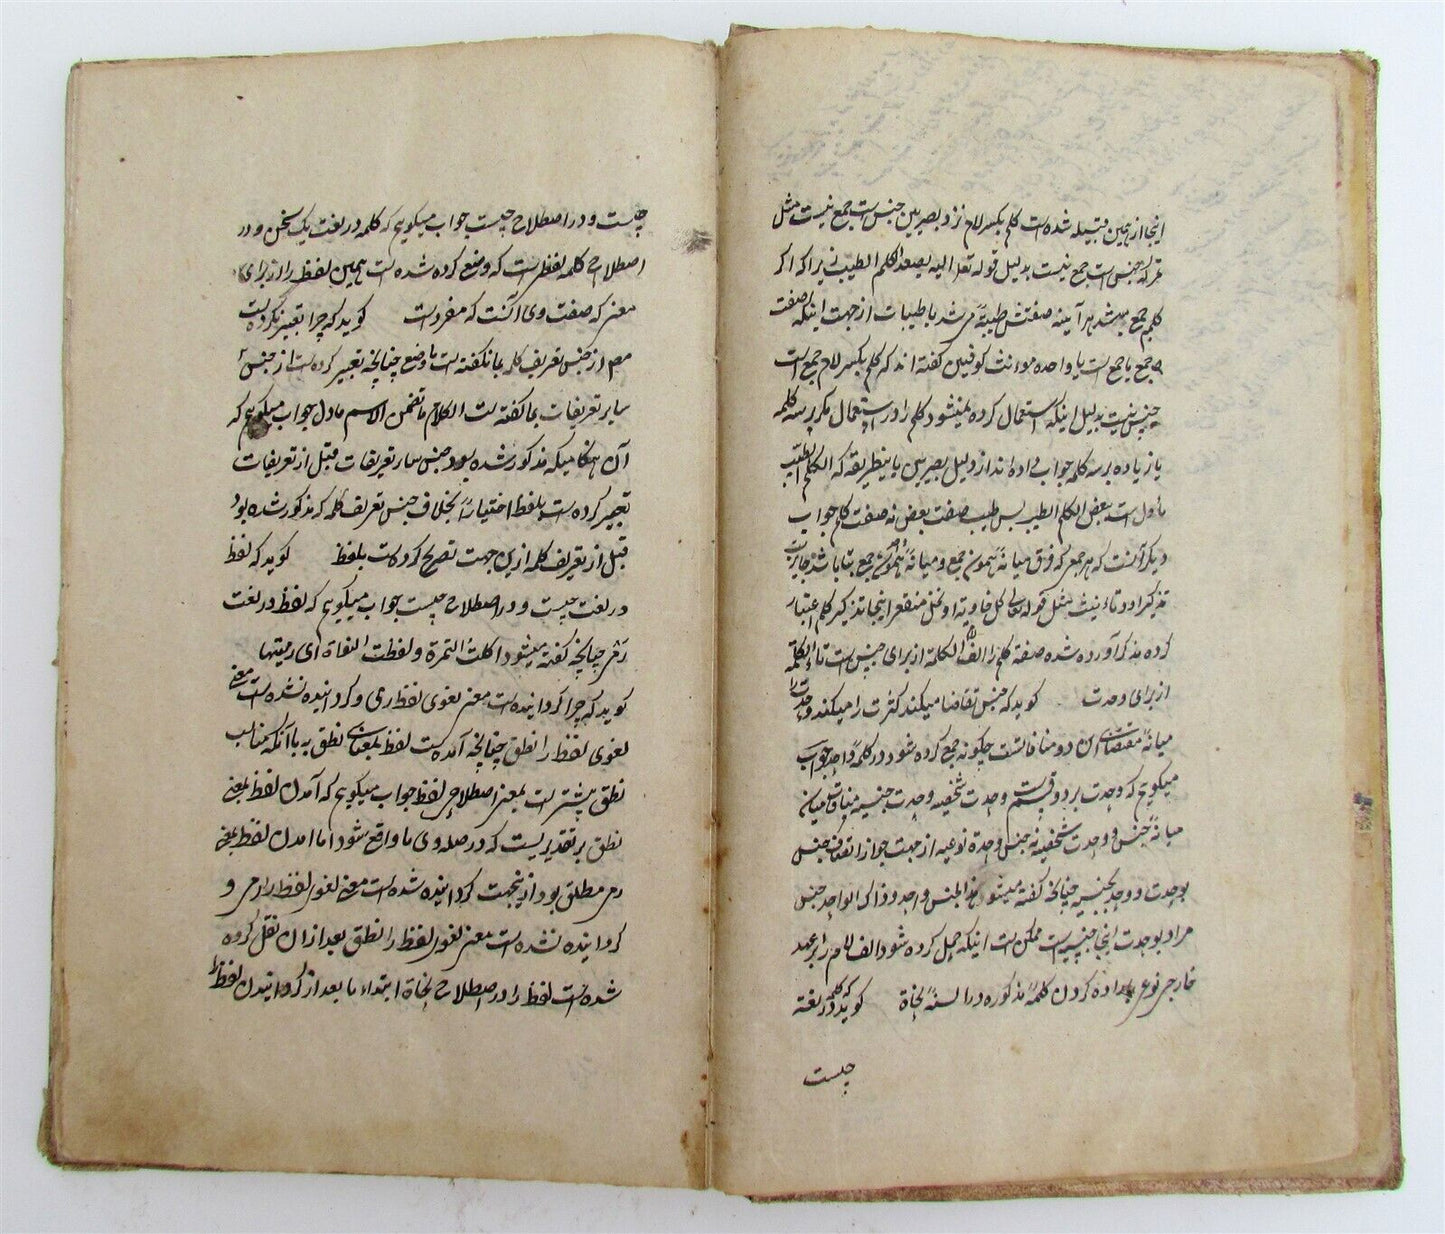 اینجا از همین قبیله شده است کلم بکسر لام نزد بصریین جنس است جمع نیست مثل
تمر که جنس است جمع نیست بدلیل قوله تعالی الیه یصعد الکلم الطیب زیرا که اگر
کلم جمع میشد هر آیینه صفتش طیبة میشد یا طیبات از جهت اینکه صفت
جمع یا جمع است یا واحده مونث کوفیین گفته اند که کلم بکسر لام جمع است
جنس نیست بدلیل اینکه استعمال کرده نمیشود کلم را در استعمال مگر بر سه کلمه
یا زیاده بر سه کلمه جواب داده اند از دلیل بصریین باینطریقه که الکلم الطیب
ماول است ببعض الکلم الطیب پس طیب صفت بعض نه صفت کلم جواب
دیگر آنست که هر جمعی که فرق میانه جمع و میانه بتا باشد جایز است
تذکیر او و تانیث مثل قوله تعالی نخل خاویة و نخل منقعر اینجا تذکیر کلم اعتبار
کرده مذکر آورده شده صفة کلم را الف لام الکلمة از برای جنس است تاء الکلمة
از برای وحدت گوید که جنس تقاضا میکند کثرت را میکند وحدت را
میانه مقتضای این دو منافاتست چگونه جمع کرده شود در کلمه واحد جواب
میگویم که وحدت بر دو قسم وحدت شخصیه وحدت جنسیه منافات میان
میانه جنس و وحدت شخصیه نه جنس وحدة نوعیه از جهت جواز اتصاف جنس
بوحدت و وحدت بجنسیه چنانچه گفته میشود هذا الجنس واحد و ذاک الواحد جنس
مراد بوحدت اینجا جنسیست ممکن است اینکه حمل کرده شود الف لام را بر عهد
خارجی نوعی باراده کردن کلمه مذکوره در السنه نحاة گوید که کلمه در لغة
چیست
چیست و در اصطلاح چیست جواب میگویم که کلمه در لغت یک سخن و در
اصطلاح کلمه لفظیست که وضع کرده شده است همین لفظ را از برای
معنی که صفت وی آنست که مفرد است گوید که چرا تعبیر نکرده است
مص از جنس تعریف کلمه بما نگفته است ما وضع چنانچه تعبیر کرده است از جنس
سایر تعریفات بما گفته است الکلام ما تضمن الاسم ما دل جواب میگویم که
آن هنگامیکه مذکور شده بود جنس سایر تعریفات قبل از تعریفات
تعبیر کرده است بلفظ ما اختیارا بخلاف جنس تعریف کلمه که مذکور نشده بود
قبل از تعریف کلمه ازین جهت تصریح کرده است بلفظ گوید که لفظ
در لغت چیست و در اصطلاح چیست جواب میگویم که لفظ در لغت
رمی چنانچه گفته میشود اکلت التمرة و لفظت النواة ای رمیتها
گوید که چرا گردانیده است معنی لغوی لفظ رمی و گردانیده نشده است معنی
لغوی لفظ را نطق چنانچه آمده است لفظ بمعنای نطق با آنکه مناسب
نطق پیشتر است بمعنی اصطلاحی لفظ جواب میگویم که آمدن لفظ بمعنی
نطق بر تقدیریست که در صله وی ما واقع شود اما آمدن لفظ بمعنی
رمی مطلق بود ازینجهت گردانیده شده است معنی لغوی لفظ را رمی و
گردانیده نشده است معنی لغوی لفظ را نطق بعد از آن نقل کرده
شده است لفظ را در اصطلاح نحاة ابتداء یا بعد از گردانیدن لفظ